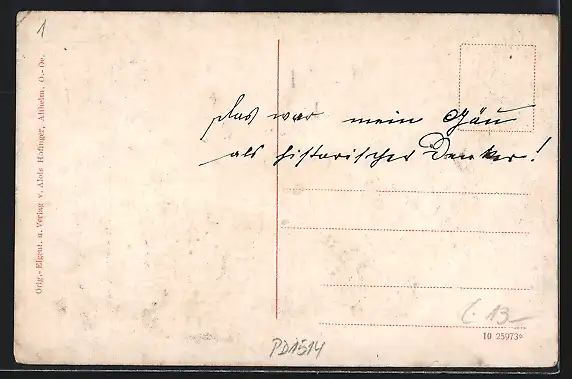 1
Orig.-Eigent. u. Verlag v. Alois Hofinger, Altheim, O.-Oe.
Das war mein Gäu
als historischer Denker!
10 25973*
PD1514